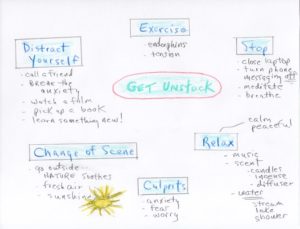 Exercise
- endorphins
- tension
Distract
Yourself
- call a friend
- BREAK the
anxiety
- watch a film
- pick up a book
- learn something new!
Stop
- close laptop
- turn phone
messaging off
- meditate
- breathe
GET UNSTUCK
calm
peaceful
Relax
- music
- scent
- candles
incense
- diffuser
- water
stream
lake
shower
Change of Scene
- go outside -
NATURE soothes
- fresh air
- sunshine
Culprits
- anxiety
- fear
- worry